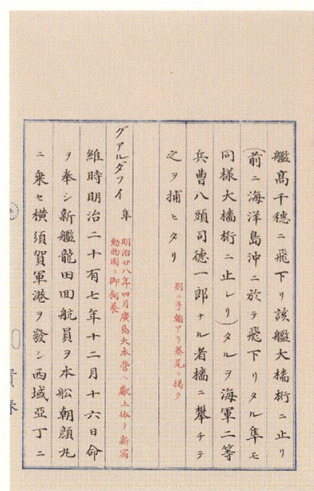 艦高千穂ニ飛下リ該艦大檣桁ニ止リ
(前ニ海洋島沖ニ於テ飛下リタル隼モ
同様大檣桁ニ止レリ)タルヲ海軍二等
兵曹八頭司德一郎ナル者檣ニ攀チテ
之ヲ捕ヒタリ
別ニ手續アリ巻尾ニ掲ク
グアルダフイ隼
明治廿八年四月廣島大本營ニ献上依リ新宿
動物園ニ御飼養
維時明治二十有七年十二月十六日命
ヲ奉シ新艦龍田回航員ヲ本船朝顔丸
ニ乗セ横須賀軍港ヲ發シ西域亞丁ニ